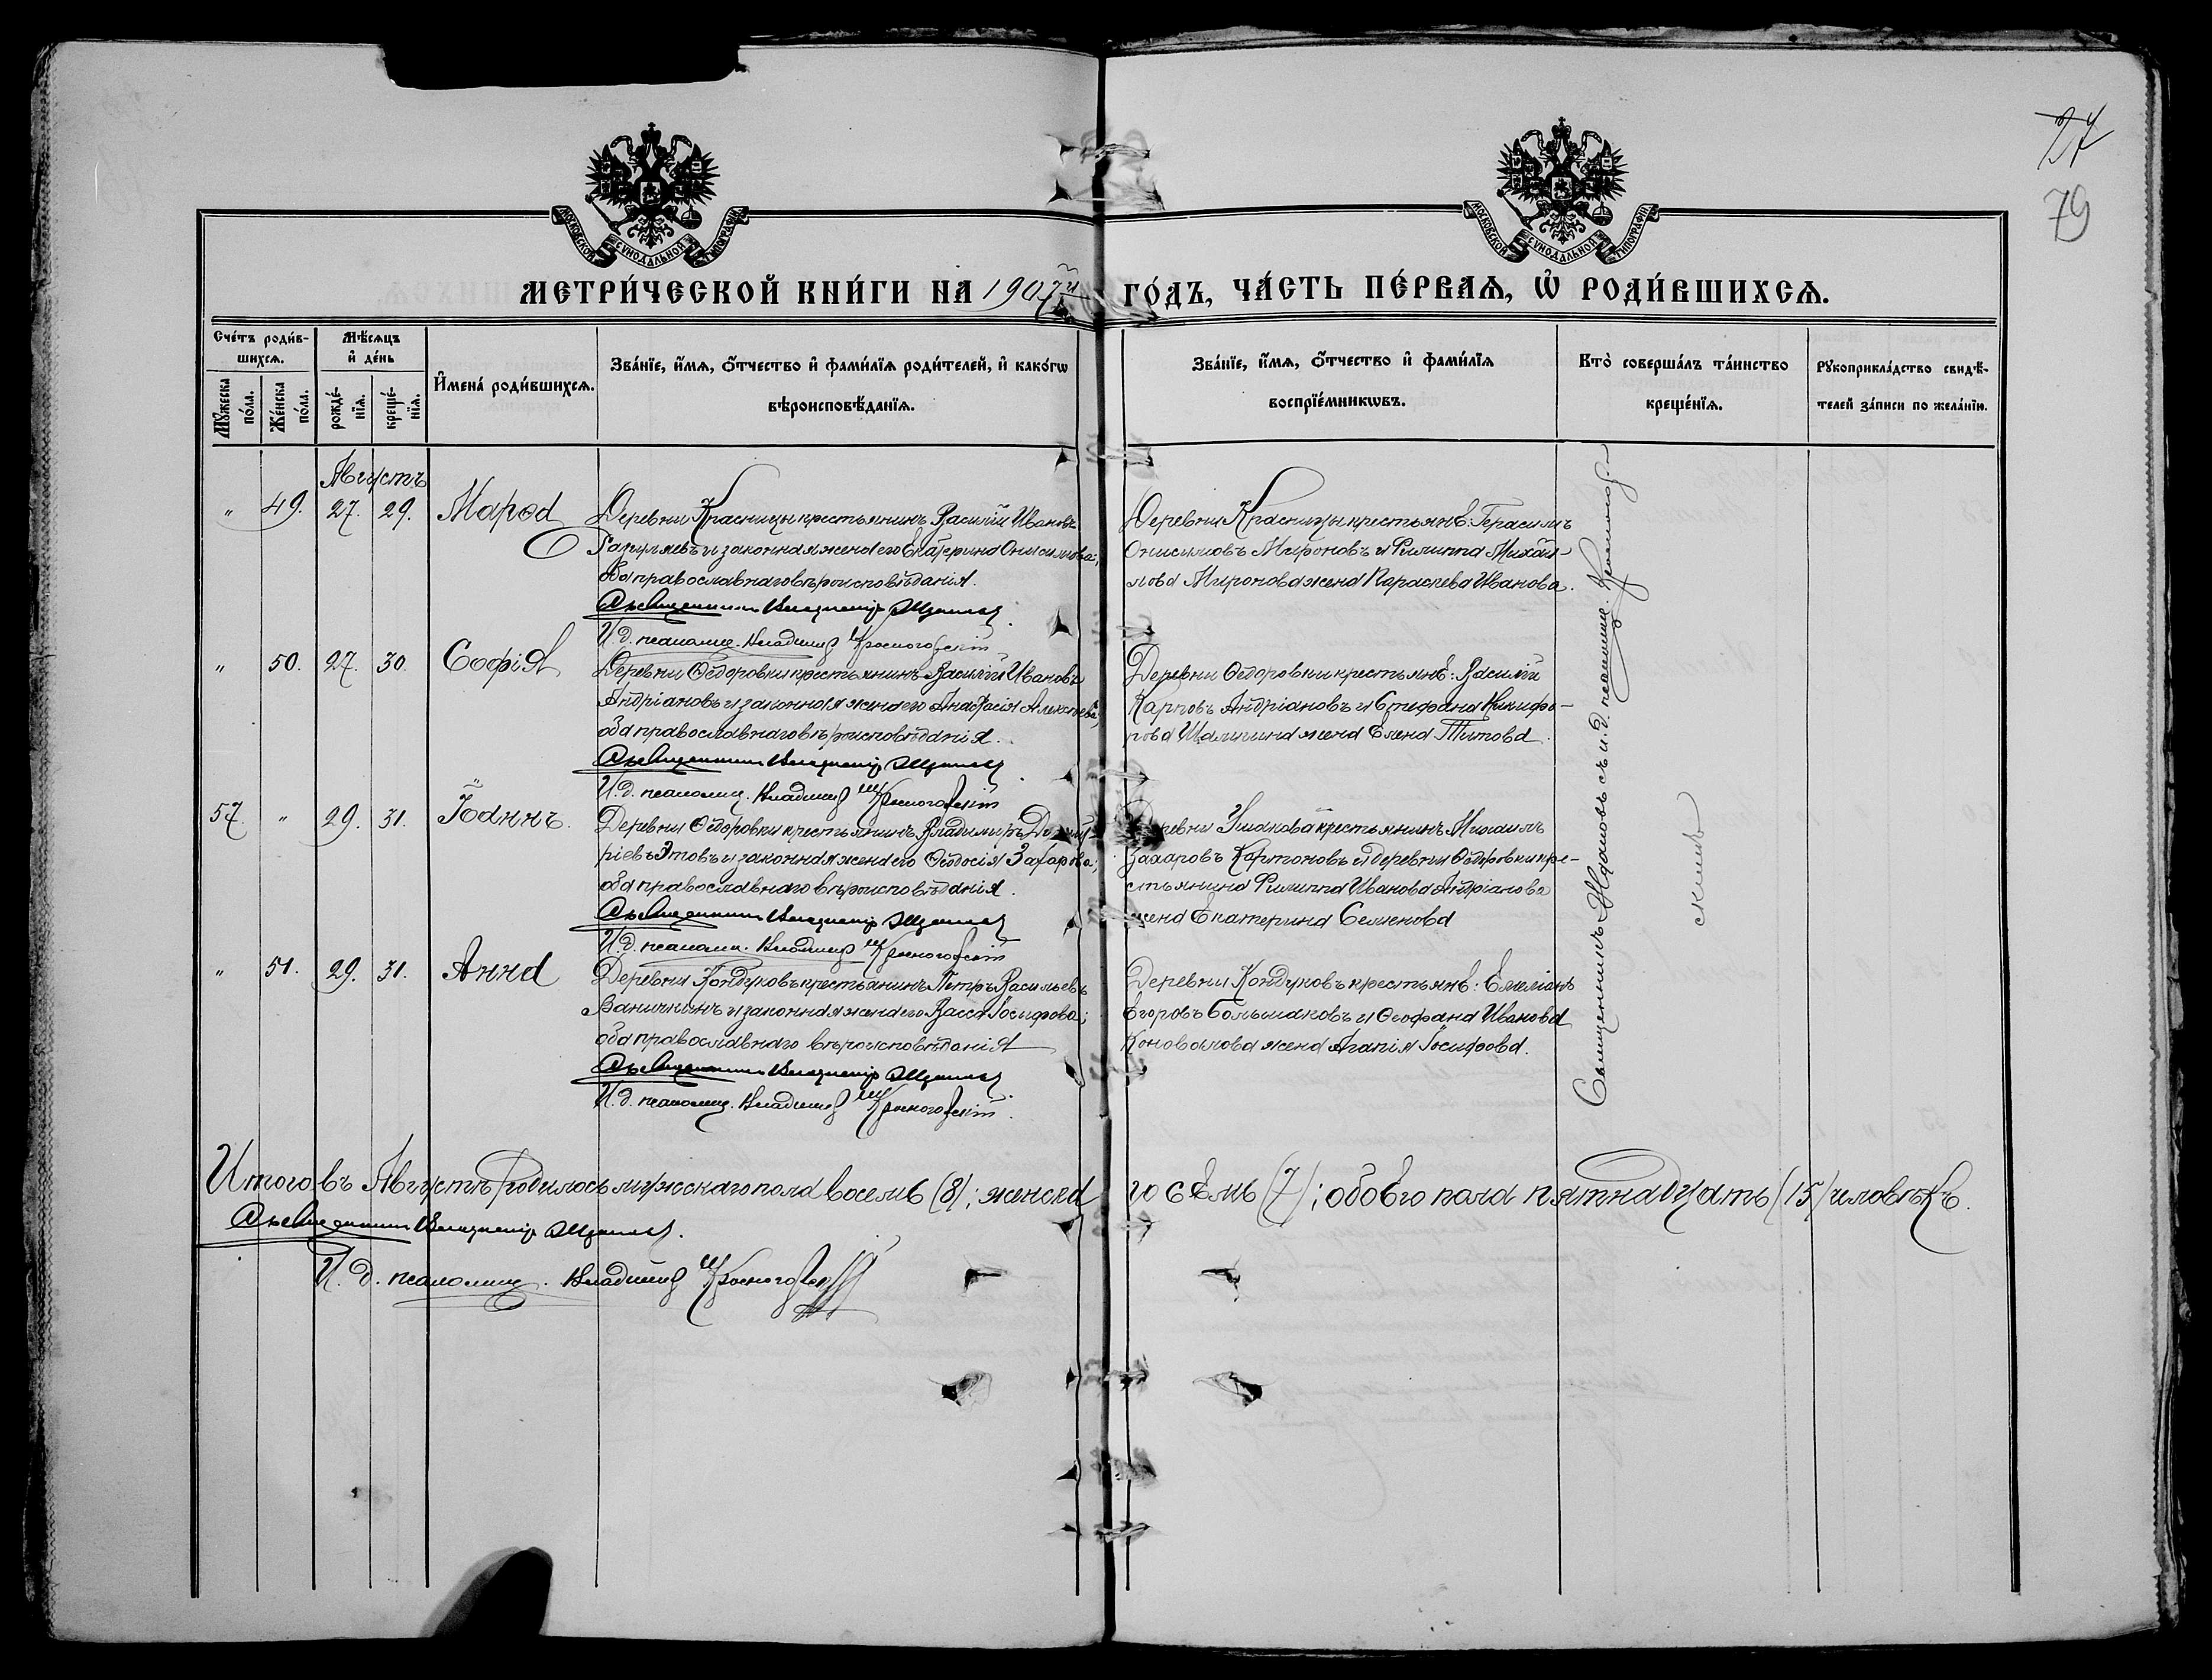 77
79
МОСКОВСКОЙ СѴНОДАЛЬНОЙ ТИПОГРАФІИ
МОСКОВСКОЙ СѴНОДАЛЬНОЙ ТИПОГРАФІИ
МЕТРИ́ЧЕСКОЙ КНИ́ГИ НА 1907й ГО́ДЪ, ЧА́СТЬ ПЕ́РВАѦ, Ѡ҆ РОДИ́ВШИХСѦ.
Сче́тъ роди́в-
шихсѧ.
Мꙋ́жеска по́ла.
Же́нска по́ла.
Мѣ́сѧцъ
и҆ де́нь
рожде́-
нїѧ.
креще́-
нїѧ.
И҆мена̀ роди́вшихсѧ.
Зва́нїе, и҆́мѧ, ѻ҆́тчество и҆ фами́лїѧ роди́телей, и҆ како́гѡ
вѣроисповѣ́данїѧ.
Зва́нїе, и҆́мѧ, ѻ҆́тчество и҆ фами́лїѧ
воспрїе́мникѡвъ.
Кто̀ соверша́лъ та́инство
креще́нїѧ.
Рꙋкоприкла́дство свидѣ́-
телей за́писи по жела́нїю.
Августъ
" 49. 27. 29. Марѳа
Деревни Красницы крестьянинъ Василій Ивановъ
и законная жена его Екатерина Онисимова;
оба православнаго вѣроисповѣданія.
Священникъ Владиміръ Ждановъ.
И.д. псаломщ. Владимір Красногорскій
Деревни Красницы крестьянѣ: Герасимъ
Онисимовъ Мироновъ и Филиппа Михай-
лова Миронова жена Параскева Иванова.
" 50. 27. 30. Софія
Деревни Ѳедоровки крестьянинъ Василій Ивановъ
Андріановъ и законная жена его Анастасія Алексѣева;
оба православнаго вѣроисповѣданія.
Священникъ Владиміръ Ждановъ.
И.д. псаломщ. Владимір Красногорскій
Деревни Ѳедоровки крестьянѣ: Василій
Карповъ Андріановъ и Стефана Никифо-
рова Шалыгина жена Елена Титова.
57. " 29. 31. Іоаннъ.
Деревни Ѳедоровки крестьянинъ Владиміръ Димит-
ріевъ Зтовъ и законная жена его Ѳеодосія Захарова;
оба православнаго вѣроисповѣданія.
Священникъ Владиміръ Ждановъ
И.д. псаломщ. Владимір Красногорскій
Деревни Ушакова крестьянинъ Михаилъ
Захаровъ Харитоновъ и деревни Ѳедоровки кре-
стьянина Филиппа Иванова Андріанова
жена Екатерина Семенова
" 51. 29. 31. Анна
Деревни Кондуковъ крестьянинъ Петръ Васильевъ
Ваничкинъ и законная жена его Васса Іосифова;
оба православнаго вѣроисповѣданія
Священникъ Владиміръ Ждановъ.
И.д. псаломщ. Владимір Красногорскій.
Деревни Кондуковъ крестьянѣ: Емеліанъ
Егоровъ Большаковъ и Ѳеофана Иванова
Коновалова жена Агапія Іосифова.
Священникъ Ждановъ съ и.д. псаломщ. Красногор-
скимъ
Итого въ Августѣ родилось мужскаго пола восемь (8); женска го семь (7); обоего пола пятнадцать (15) человѣкъ.
Священникъ Владиміръ Ждановъ.
И.д. псаломщ. Владимір Красногорскій